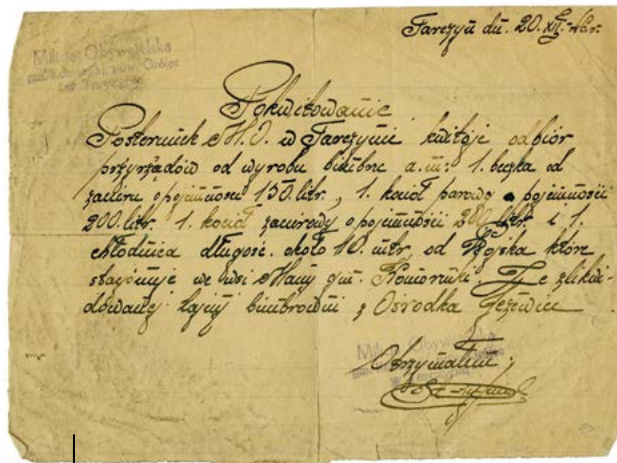 Tarczyn dn. 20.XII-46r.
Milicja Obywatelska
Pokwitowanie
Posterunek M.O. w Tarczynie kwituje odbiór
przyrządów od wyrobu bimbru a.m: 1. beczka od
zacieru o pojemności 150. litr., 1. kocioł parowy o pojemności
200. litr. 1. kocioł zacierowy o pojemności litr. i 1.
chłodnica długość. około 10. mtr. od Wojska które
stacjonuje we wsi Mamy gm. Komorniki. Tj. z zlikwi-
dowanej tajnej bimbrowni z Ośrodka Jeżewice
Milicja Obywatelska
Otrzymałem: